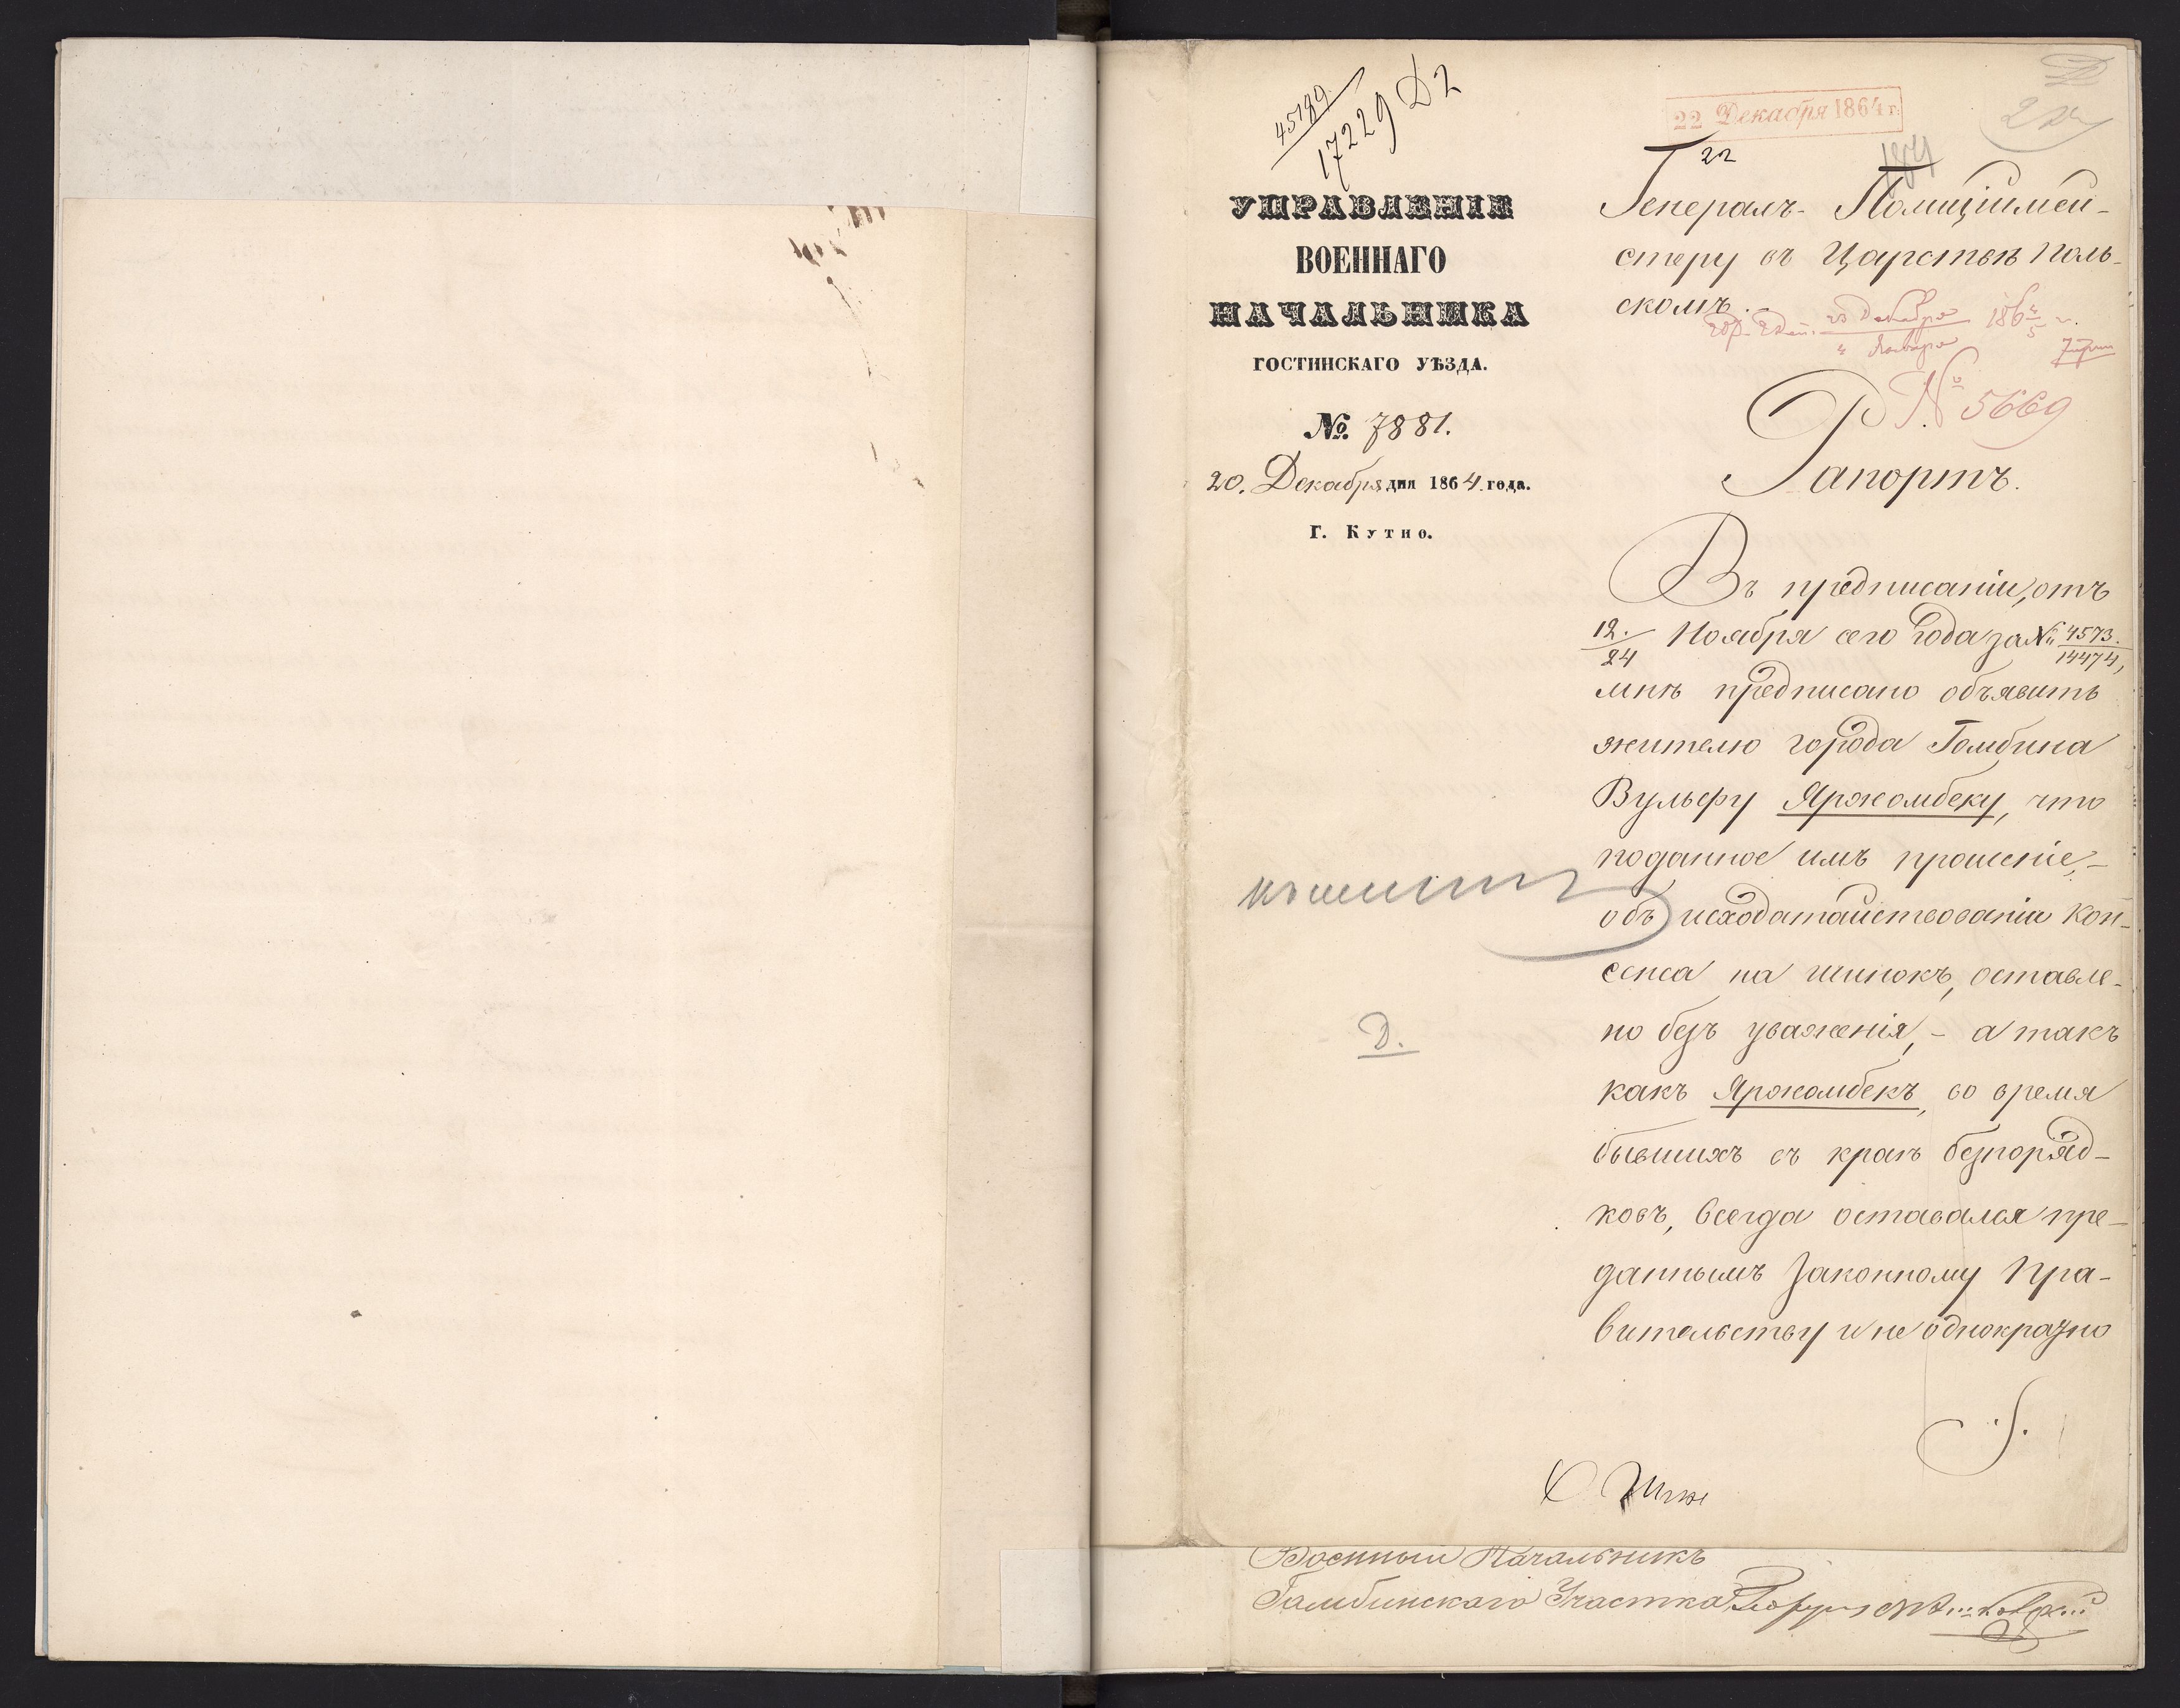 45189
17229 Д2
22 Декабря 1864 г.
УПРАВЛЕНІЕ
ВОЕННАГО
НАЧАЛЬНИКА
ГОСТИНСКАГО УѢЗДА.
№ 7881.
20. Декабря дня 1864. года.
Г. Кутно.
22
184
Генералъ-Полиціймей-
стеру въ Царствѣ Поль-
скомъ.
23 Декабря 1864/5 г.
4 Января
№ 5669
Рапортъ.
Въ предписаніи, отъ
12./24 Ноября сего года за № 4573./14474,
мнѣ предписано объявить
жителю города Гомбина
Вульфу Яржомбеку, что
поданное имъ прошеніе,-
объ исходатайствованіи кон-
сенса на шинокъ, оставле-
но безъ уваженія,- а такъ
какъ Яржомбекъ, во время
бывшихъ въ краѣ безпоряд-
ковъ, всегда оставался пре-
даннымъ Законному Пра-
вительству и не однократно
Д.
Военный Начальникъ
Гомбинскаго Участка